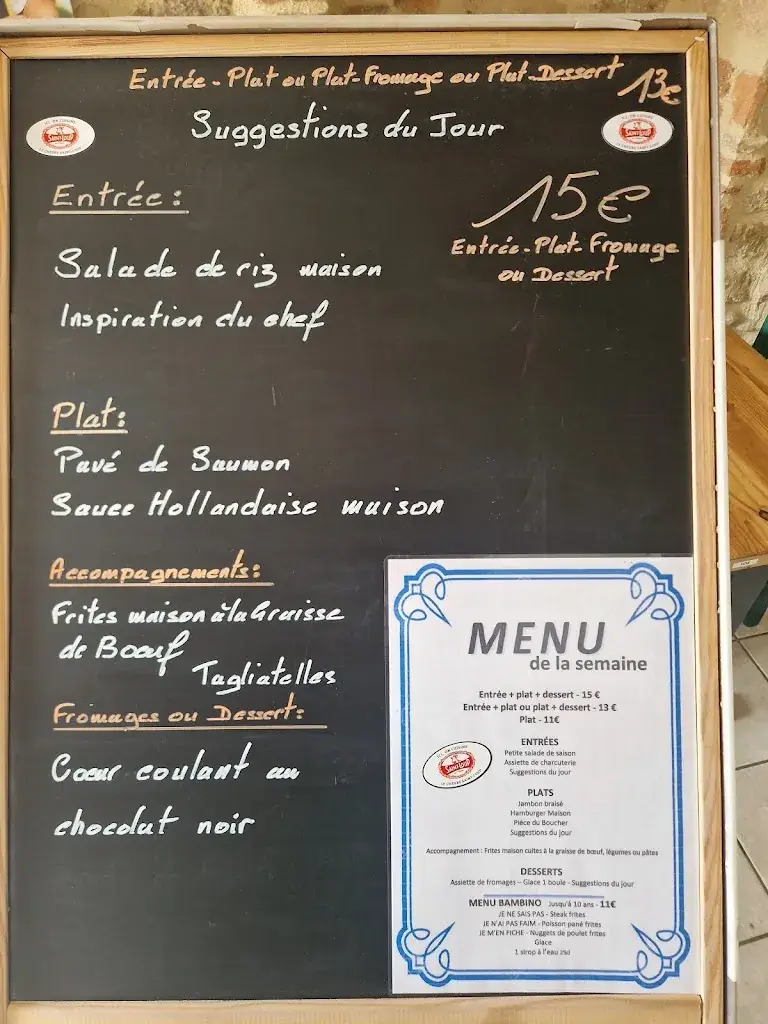 Entrée - Plat ou Plat-Fromage ou Plat-Dessert 13€
Suggestions du Jour
SAINT LOUP
SAINT LOUP
Entrée:
15€
Entrée-Plat-Fromage
ou Dessert
Salade de riz maison
Inspiration du chef
Plat:
Pavé de Saumon
Sauce Hollandaise maison
Accompagnements:
Frites maison à la Graisse
de Bœuf
Tagliatelles
Fromages ou Dessert:
Cœur coulant au
chocolat noir
MENU
de la semaine
Entrée + plat + dessert - 15 €
Entrée + plat ou plat + dessert - 13 €
Plat - 11€
ICI, ON CUISINE
SAINT LOUP
ENTRÉES
Petite salade de saison
Assiette de charcuterie
Suggestions du jour
PLATS
Jambon braisé
Hamburger Maison
Pièce du Boucher
Suggestions du jour
Accompagnement : Frites maison cuites à la graisse de bœuf, légumes ou pâtes
DESSERTS
Assiette de fromages – Glace 1 boule - Suggestions du jour
MENU BAMBINO Jusqu'à 10 ans - 11€
JE NE SAIS PAS - Steak frites
JE N'AI PAS FAIM - Poisson pané frites
JE M'EN FICHE - Nuggets de poulet frites
Glace
1 sirop à l'eau 25cl